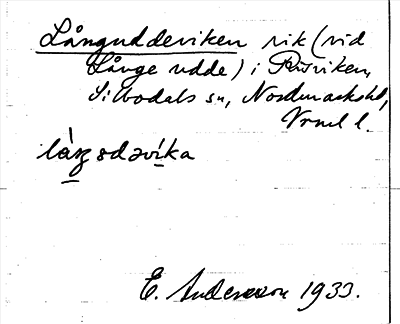 Långuddeviken vik (vid
Långe udde) i Risviken,
Silbodals sn, Nordmarks hd,
Vrml l.
E. Andersson 1933.